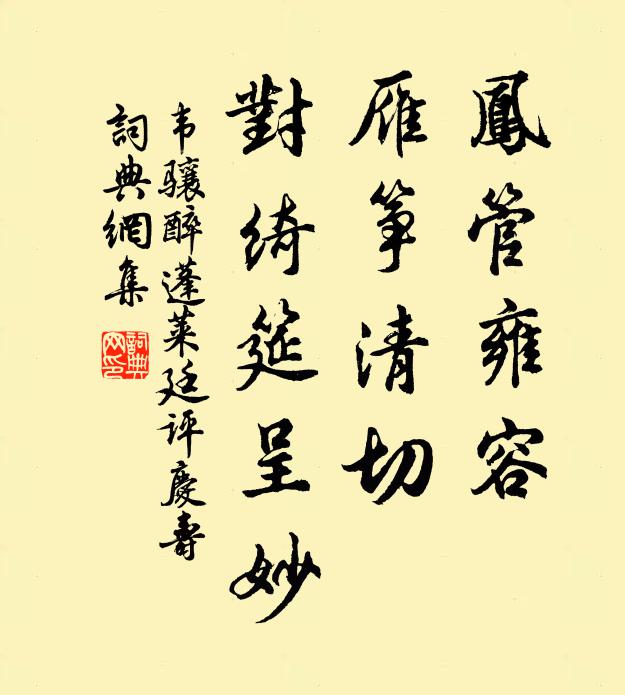 鳳管雍容
雁筝清切
對綺筵呈妙
韦骧醉蓬莱廷评慶壽
詞典網集
詞典网印